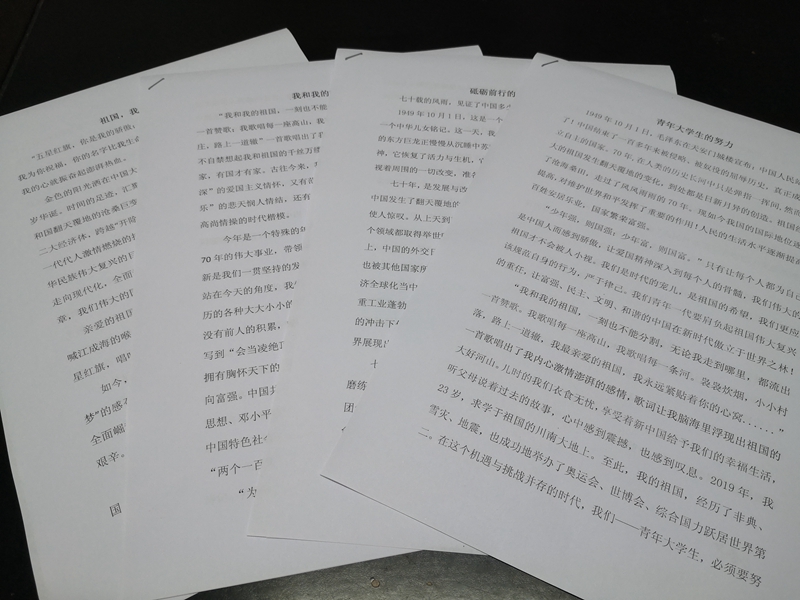 祖国，我
“五星红旗，你是我的骄傲，
我为你祝福，你的名字比我生命
我的心就振奋起澎湃热血。
金色的阳光洒在中国大
岁华诞。时间的足迹，汇聚
和国翻天覆地的沧桑巨变
二大经济体，跨越“开阶
一代代人激情燃烧的
华民族伟大复兴的目
走向现代化，全面
章，我们伟大的
亲爱的祖国
喊江成海的
星红旗，唱响
如今，
梦”的感
全面崛
艰辛。
国
我和我的
“我和我的祖国，一刻也不能
一首赞歌，我歌唱每一座高山，我
庄，路上一道辙”一首歌唱出了我
不自禁想起我和祖国的千丝万缕
家，有国才有家。古往今来，
深”的爱国主义情怀，又有
乐”的悲天悯人情结，还有
高尚情操的时代楷模。
今年是一个特殊的
70 年的伟大事业，带领
新是我们一贯坚持的发
站在今天的角度，我
历的各种大大小小的
没有前人的积累，
写到“会当凌绝顶
拥有胸怀天下的
向富强。中国共
思想、邓小平
中国特色社
“两个一百
“为
砥砺前行的
七十载的风雨，见证了中国多
1949 年 10 月 1 日，这是一个
一个中华儿女铭记。这一天，我
的东方巨龙正慢慢从沉睡中苏
神，它恢复了活力与生机，它
视着周围的一切改变，准
七十年，是发展与改
中国发生了翻天覆地的
使人惊叹，从上天到
个领域都取得举世
上，中国的外交日
也被其他国家所
济全球化当中
重工业蓬勃
的冲击下
界展现
七
磨练
团
全
青年大学生的努力
1949 年 10 月 1 日，毛泽东在天安门城楼宣布，中国人民站
了！中国结束了一百多年来被侵略、被奴役的屈辱历史，真正成
立自主的国家。70 年，在人类的历史长河中只是弹指一挥间，然而
人的祖国发生翻天覆地的变化，到处都是日新月异的创造。祖国经
了沧海桑田，走过了风风雨雨的 70 年，现如今我国的国际地位逐
提高，对维护世界和平发挥了重要的作用！人民的生活水平逐渐提高
百姓安居乐业，国家繁荣富强。
“少年强，则国强；少年富，则国富。”只有让每个人都为自己
是中国人而感到骄傲，让爱国精神深入到每个人的骨髓，我们伟大的
祖国才不会被人小视。我们是时代的宠儿，是祖国的希望，我们更应
该规范自身的行为，严于律己。我们青年一代要肩负起祖国伟大复兴
的重任，让富强、民主、文明、和谐的中国在新时代傲立于世界之林！
“我和我的祖国，一刻也不能分割，无论我走到哪里，都流出
一首赞歌。我歌唱每一座高山，我歌唱每一条河。袅袅炊烟，小小村
落，路上一道辙，我最亲爱的祖国，我永远紧贴着你的心窝……”
一首歌唱出了我内心激情澎湃的感情，歌词让我脑海里浮现出祖国的
大好河山。儿时的我们衣食无忧，享受着新中国给予我们的幸福生活，
听父母说着过去的故事，心中感到震撼，也感到叹息。2019 年，我
23 岁，求学于祖国的川南大地上。至此，我的祖国，经历了非典、
雪灾、地震，也成功地举办了奥运会、世博会、综合国力跃居世界第
二。在这个机遇与挑战并存的时代，我们——青年大学生，必须要努